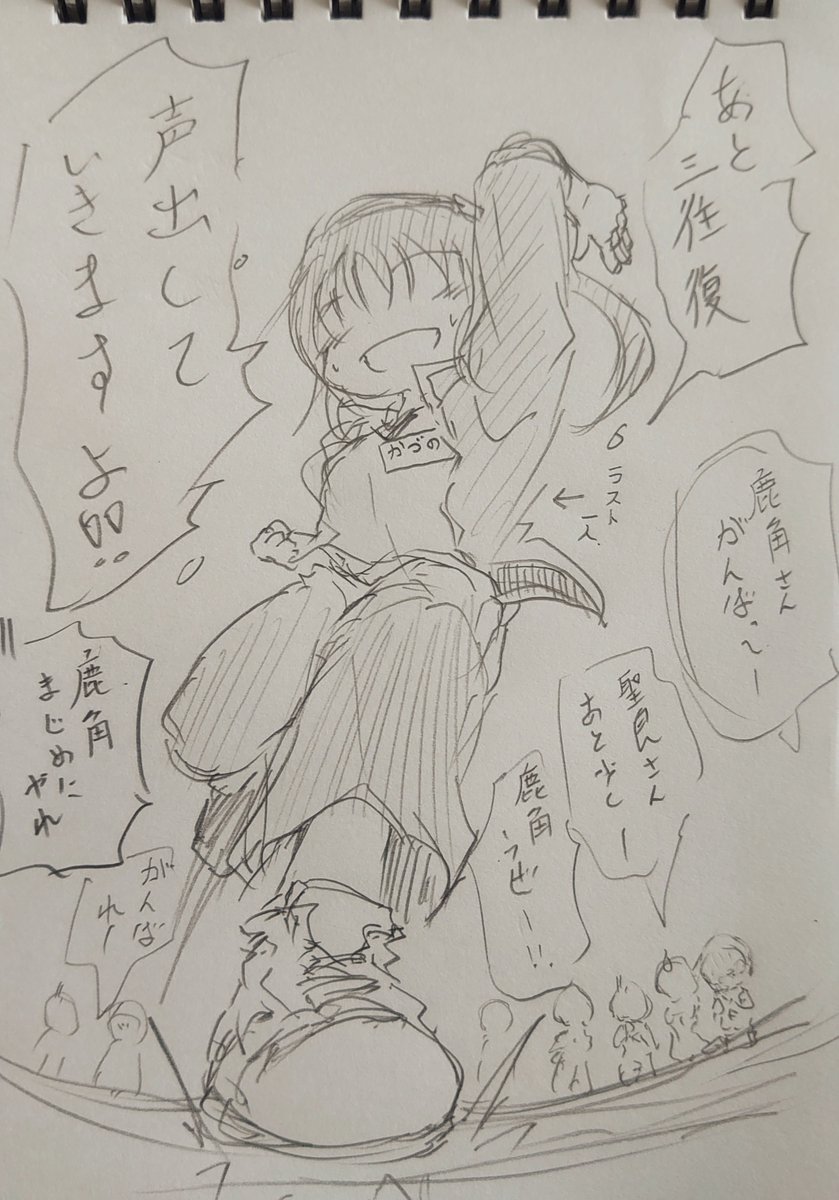 あと
三往復
声出して
いきますよ!!
かづの
←ラスト
一人
鹿角さん
がんばっー
聖良さん
あと少しー
鹿角
うざー!!
鹿角
まじめに
やれ
がんば
れー